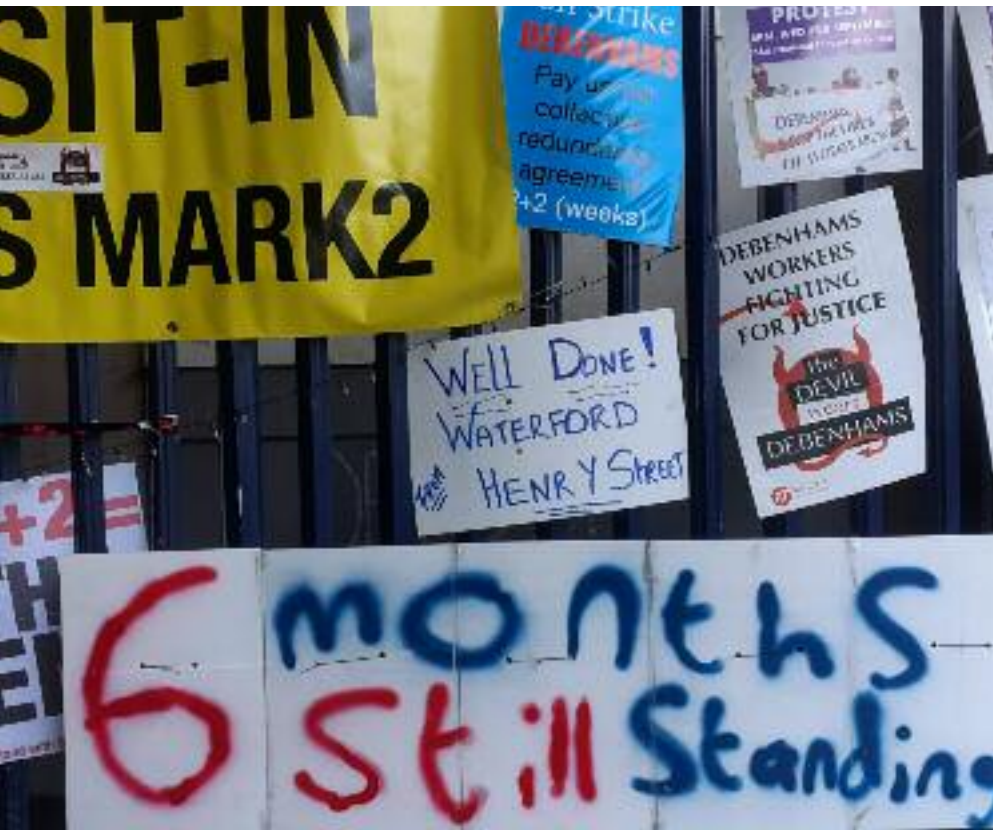 SIT-IN
S MARK2
Strike
DEBENHAMS
Pay
redundancy
agreement
2+2 (weeks)
PROTEST
DEBENHAMS
WORKERS
FIGHTING
FOR JUSTICE
the
DEVIL
DEBENHAMS
WELL DONE!
WATERFORD
From HENRY Street
+2=
6 months
Still Standing